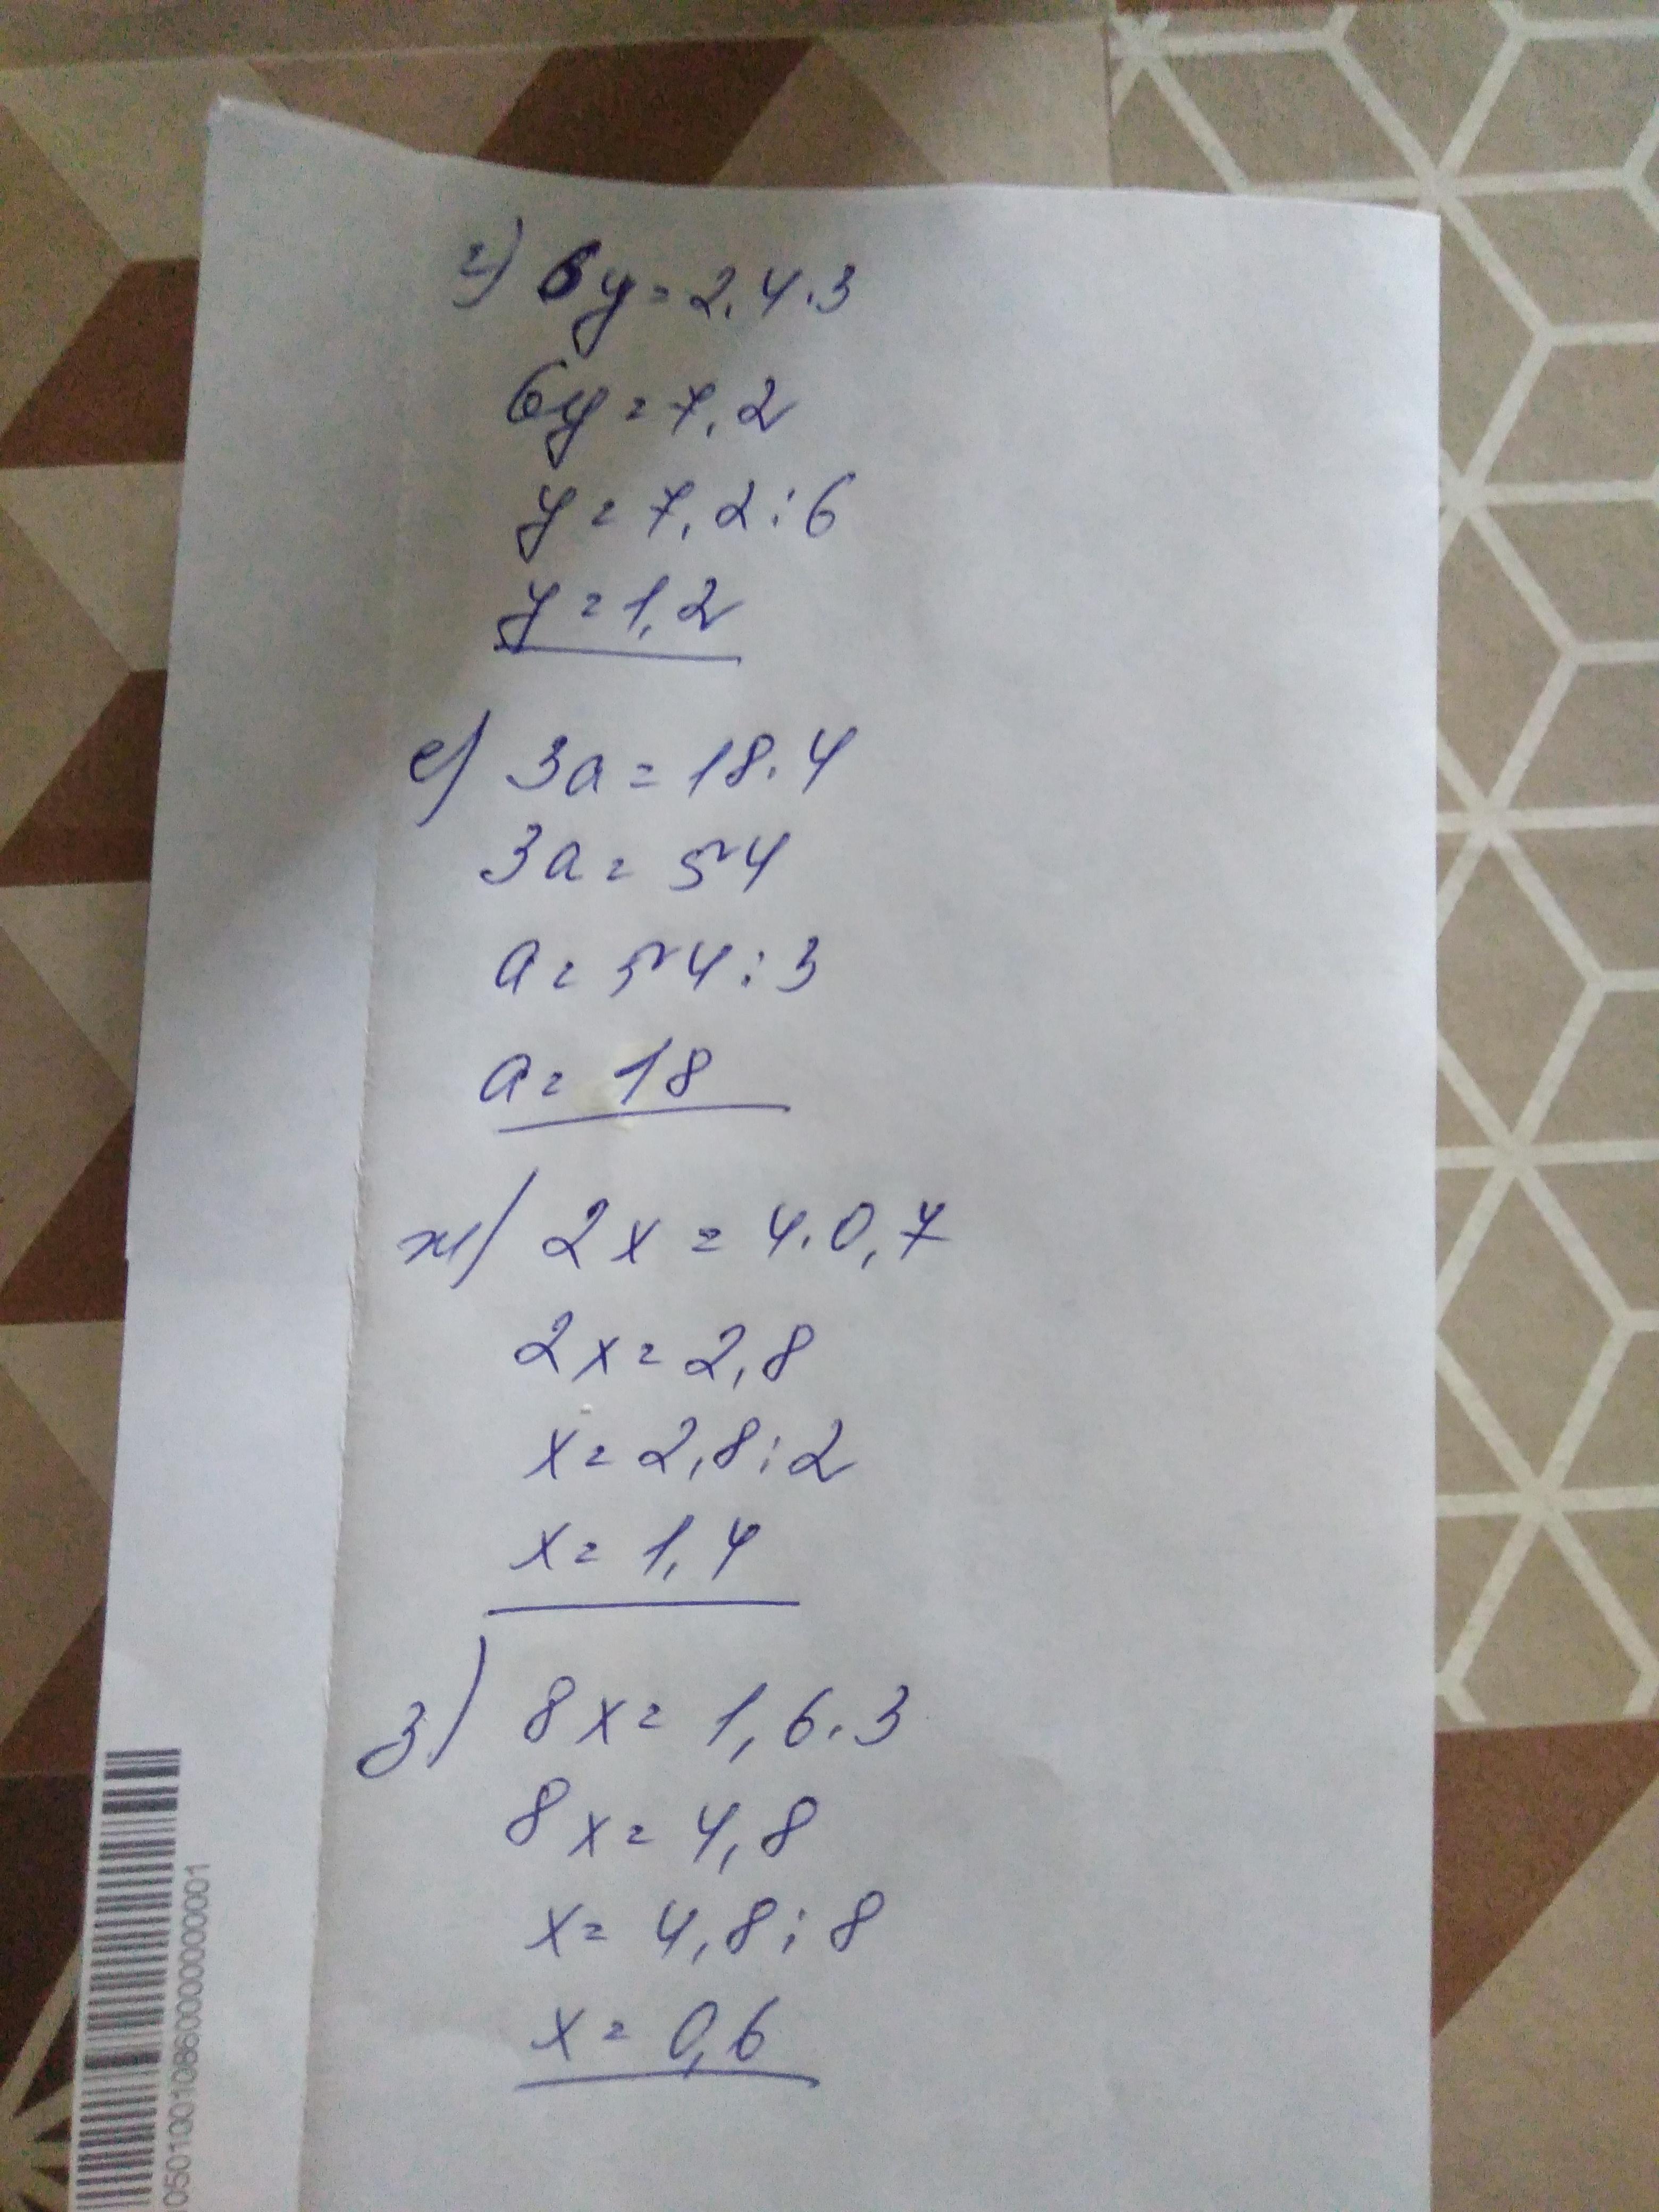 г) 6y = 2,4·3
6y = 7,2
y = 7,2:6
y = 1,2
е) 3a = 18·4
3a = 54
a = 54:3
a = 18
ж) 2x = 4·0,7
2x = 2,8
x = 2,8:2
x = 1,4
з) 8x = 1,6·3
8x = 4,8
x = 4,8:8
x = 0,6